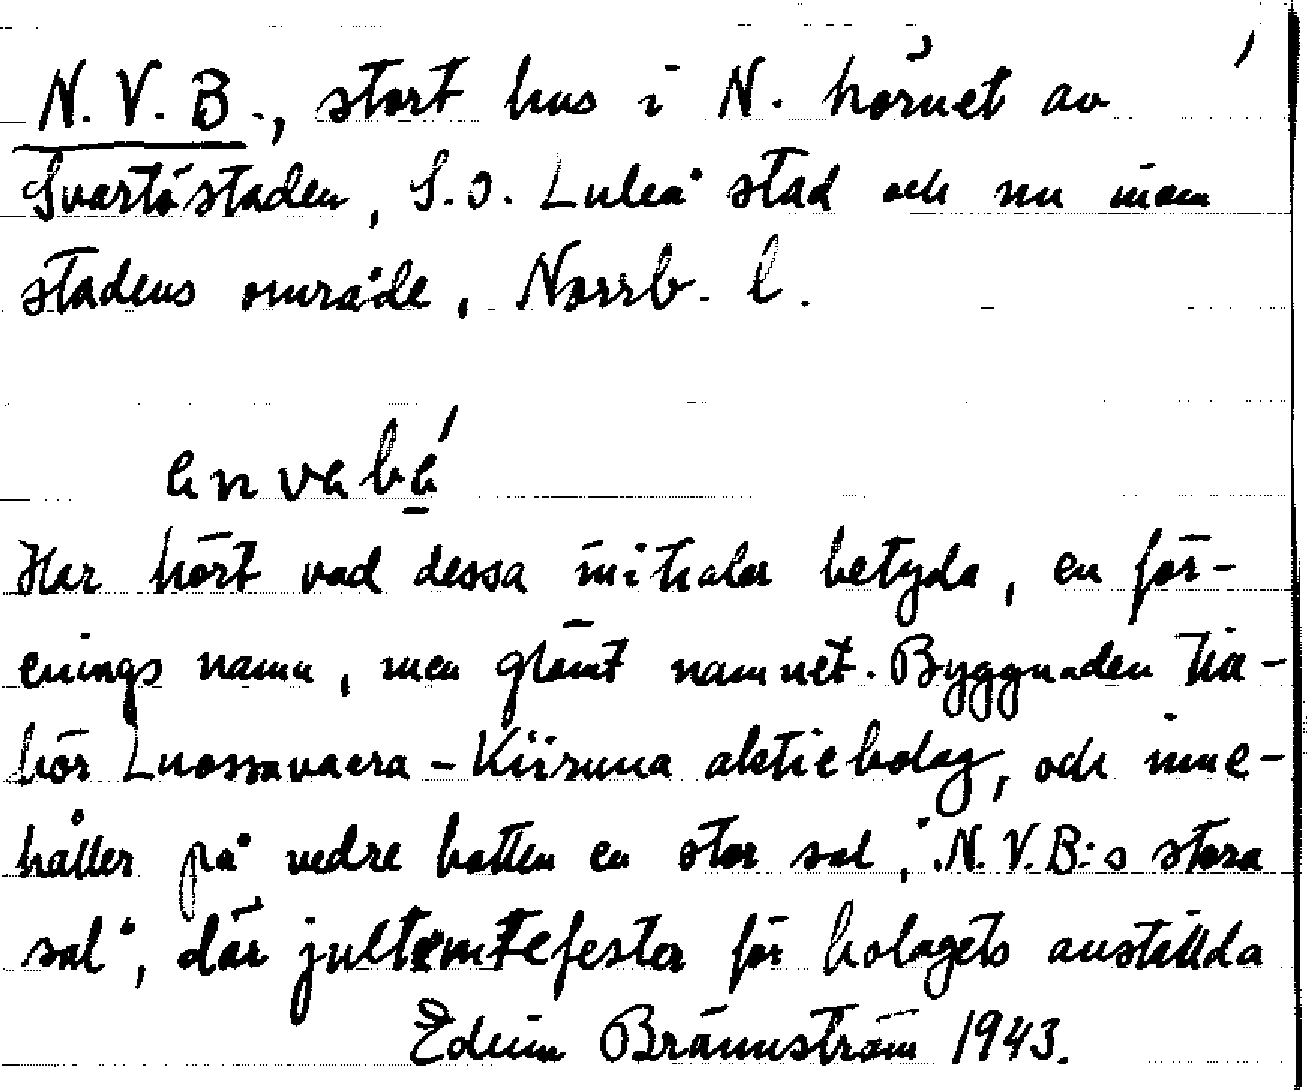 N.V.B., stort hus i N. hörnet av
Svartöstaden, S.O. Luleå stad och nu inom
stadens område, Norrb. l.
en ve bé
Har hört vad dessa initialer betyda, en för-
enings namn, men glömt namnet. Byggnaden till-
hör Luossavaara-Kiiruna aktiebolag, och inne-
håller på nedre botten en stor sal, "N.V.B:s stora
sal", där jultomtefester för bolagets anställda
Edvin Brännström 1943.